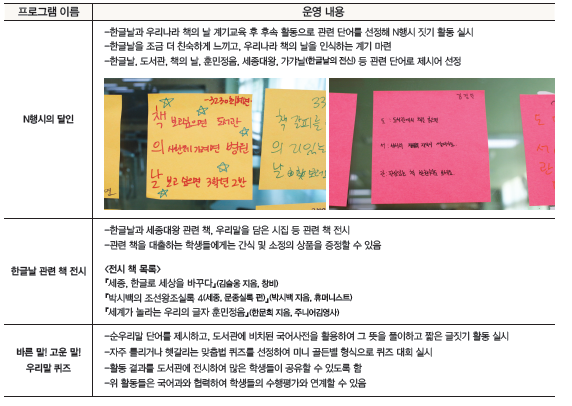 프로그램 이름
운영 내용
N행시의 달인
-한글날과 우리나라 책의 날 계기교육 후 후속 활동으로 관련 단어를 선정해 N행시 짓기 활동 실시
-한글날을 조금 더 친숙하게 느끼고, 우리나라 책의 날을 인식하는 계기 마련
-한글날, 도서관, 책의 날, 훈민정음, 세종대왕, 가갸날(한글날의 전신) 등 관련 단어로 제시어 선정
책
의
날 보고 싶으면 3학년 2반
33
책 갈피를
의
날
도
서
관
한글날 관련 책 전시
-한글날과 세종대왕 관련 책, 우리말을 담은 시집 등 관련 책 전시
-관련 책을 대출하는 학생들에게는 간식 및 소정의 상품을 증정할 수 있음
<전시 책 목록>
『세종, 한글로 세상을 바꾸다』(김슬옹 지음, 창비)
『박시백의 조선왕조실록 4(세종, 문종실록 편)』(박시백 지음, 휴머니스트)
『세계가 놀라는 우리의 글자 훈민정음』(한문희 지음, 주니어김영사)
바른 말! 고운 말!
우리말 퀴즈
-순우리말 단어를 제시하고, 도서관에 비치된 국어사전을 활용하여 그 뜻을 풀이하고 짧은 글짓기 활동 실시
-자주 틀리거나 헷갈리는 맞춤법 퀴즈를 선정하여 미니 골든벨 형식으로 퀴즈 대회 실시
-활동 결과를 도서관에 전시하여 많은 학생들이 공유할 수 있도록 함
-위 활동들은 국어과와 협력하여 학생들의 수행평가와 연계할 수 있음